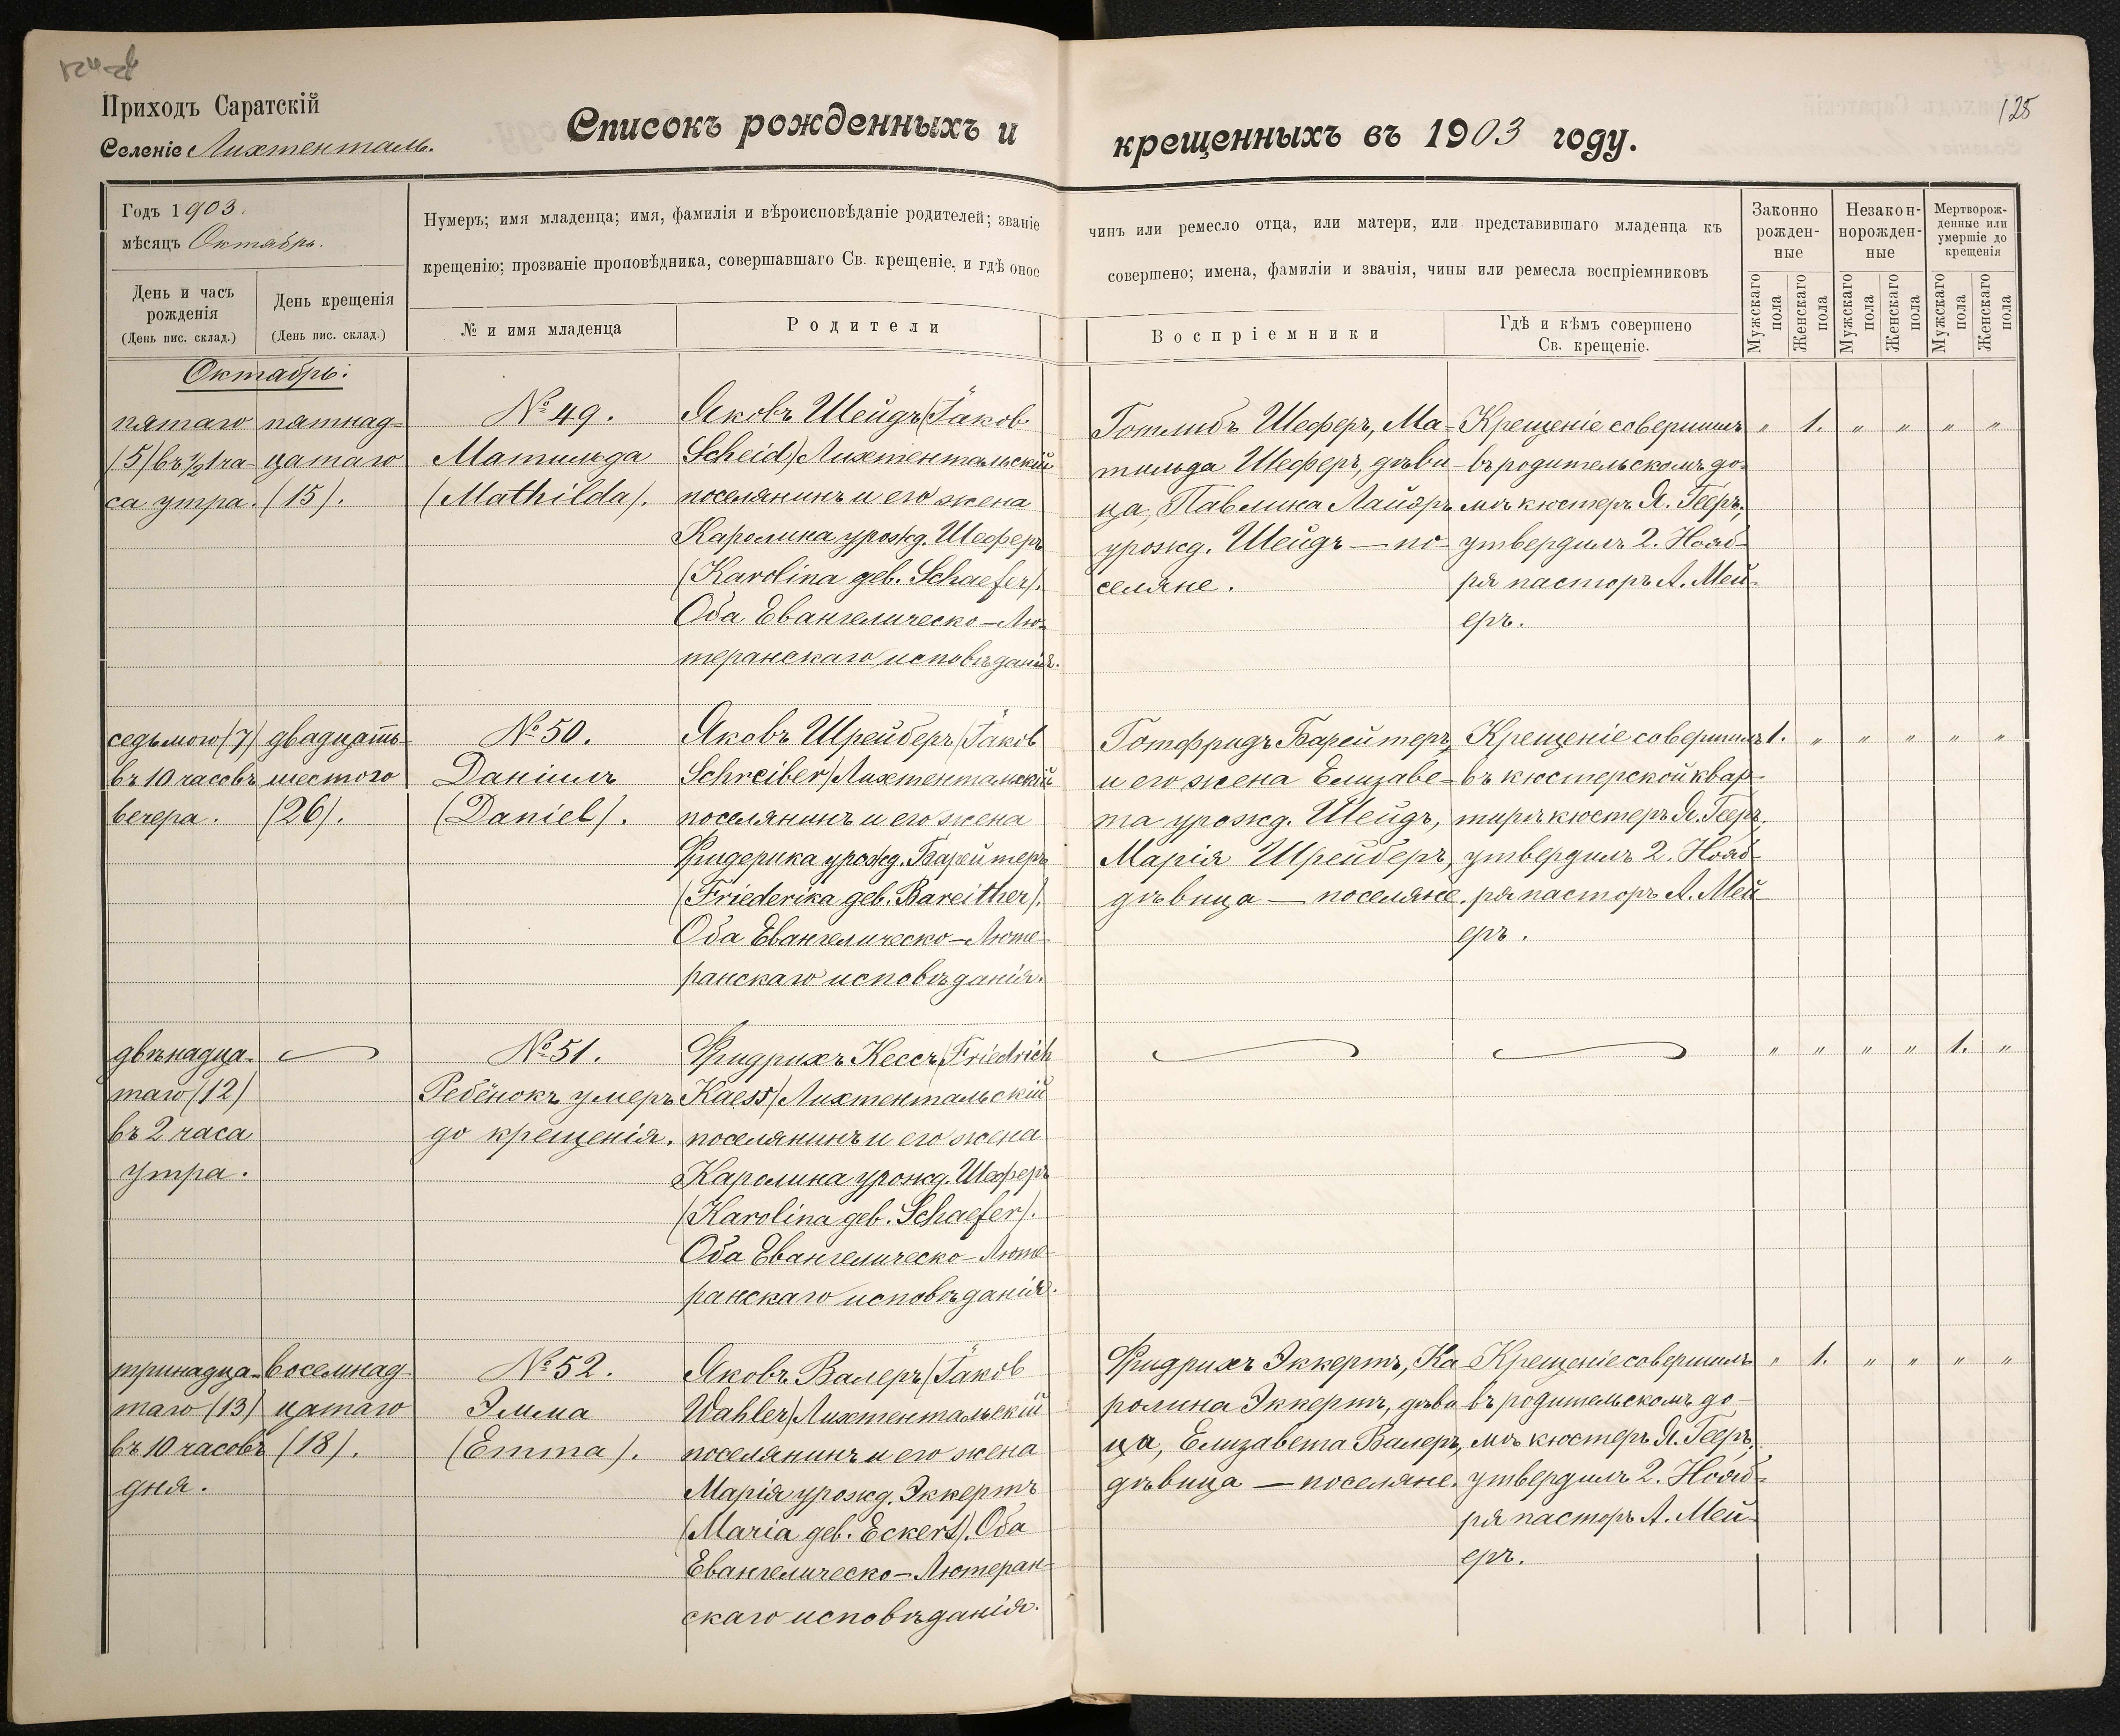 Приходъ Саратскій
Селеніе Лихтенталь.
Списокъ рожденныхъ и крещенныхъ въ 1903 году.
125
Годъ 1903.
мѣсяцъ Октябрь.
Нумеръ; имя младенца; имя, фамилія и вѣроисповѣданіе родителей; званіе
чинъ или ремесло отца, или матери, или представившаго младенца къ
крещенію; прозваніе проповѣдника, совершавшаго Св. крещеніе, и гдѣ оное
совершено; имена, фамиліи и званія, чины или ремесла воспріемниковъ
День и часъ
рожденія
(День пис. склад.)
День крещенія
(День пис. склад.)
№ и имя младенца
Родители
Воспріемники
Гдѣ и кѣмъ совершено
Св. крещеніе.
Законно
рожден-
ные
Незакон-
норожден-
ные
Мертворож-
денные или
умершіе до
крещенія
Мужскаго пола
Женскаго пола
Мужскаго пола
Женскаго пола
Мужскаго пола
Женскаго пола
Октябрь:
пятаго
(5) въ ½1 ча-
са утра.
пятнад-
цатаго
(15).
№ 49.
Матильда
(Mathilda).
Яковъ Шейдъ (Jakob
Scheid) Лихтентальскій
поселянинъ и его жена
Каролина урожд. Шеферъ
(Karolina geb. Schaefer).
Оба Евангелическо-Лю-
теранскаго исповѣданія.
Готлибъ Шеферъ, Ма-
тильда Шеферъ, дѣви-
ца, Павлина Лайэръ
урожд. Шейдъ — по-
селяне.
Крещеніе совершилъ
въ родительскомъ до-
мѣ кюстеръ Я. Гееръ,
утвердилъ 2. Нояб-
ря пасторъ А. Мей-
еръ.
" 1. " " " "
седьмого (7)
въ 10 часовъ
вечера.
двадцать
шестого
(26).
№ 50.
Даніилъ
(Daniel).
Яковъ Шрейберъ (Jakob
Schreiber) Лихтентальскій
поселянинъ и его жена
Фридерика урожд. Барейтеръ
(Friederika geb. Bareither).
Оба Евангелическо-Люте-
ранскаго исповѣданія.
Готфридъ Барейтеръ,
и его жена Елизаве-
та урожд. Шейдъ,
Марія Шрейберъ,
дѣвица — поселяне.
Крещеніе совершилъ
въ кюстерской квар-
тирѣ кюстеръ Я. Гееръ,
утвердилъ 2. Нояб-
ря пасторъ А. Мей-
еръ.
1. " " " " "
двѣнадца-
таго (12)
въ 2 часа
утра.
№ 51.
Ребёнокъ умеръ
до крещенія.
Фридрихъ Кессъ (Friedrich
Kaess) Лихтентальскій
поселянинъ и его жена
Каролина урожд. Шеферъ
(Karolina geb. Schaefer).
Оба Евангелическо-Люте-
ранскаго исповѣданія.
" " " " 1. "
тринадца-
таго (13)
въ 10 часовъ
дня.
восемнад-
цатаго
(18).
№ 52.
Эмма
(Emma).
Яковъ Валеръ (Jakob
Wahler) Лихтентальскій
поселянинъ и его жена
Марія урожд. Эккертъ
(Maria geb. Eckert). Оба
Евангелическо-Лютеран-
скаго исповѣданія.
Фридрихъ Эккертъ, Ка-
ролина Эккертъ, дѣви-
ца, Елизавета Валеръ,
дѣвица — поселяне.
Крещеніе совершилъ
въ родительскомъ до-
мѣ кюстеръ Я. Гееръ,
утвердилъ 2. Нояб-
ря пасторъ А. Мей-
еръ.
" 1. " " " "